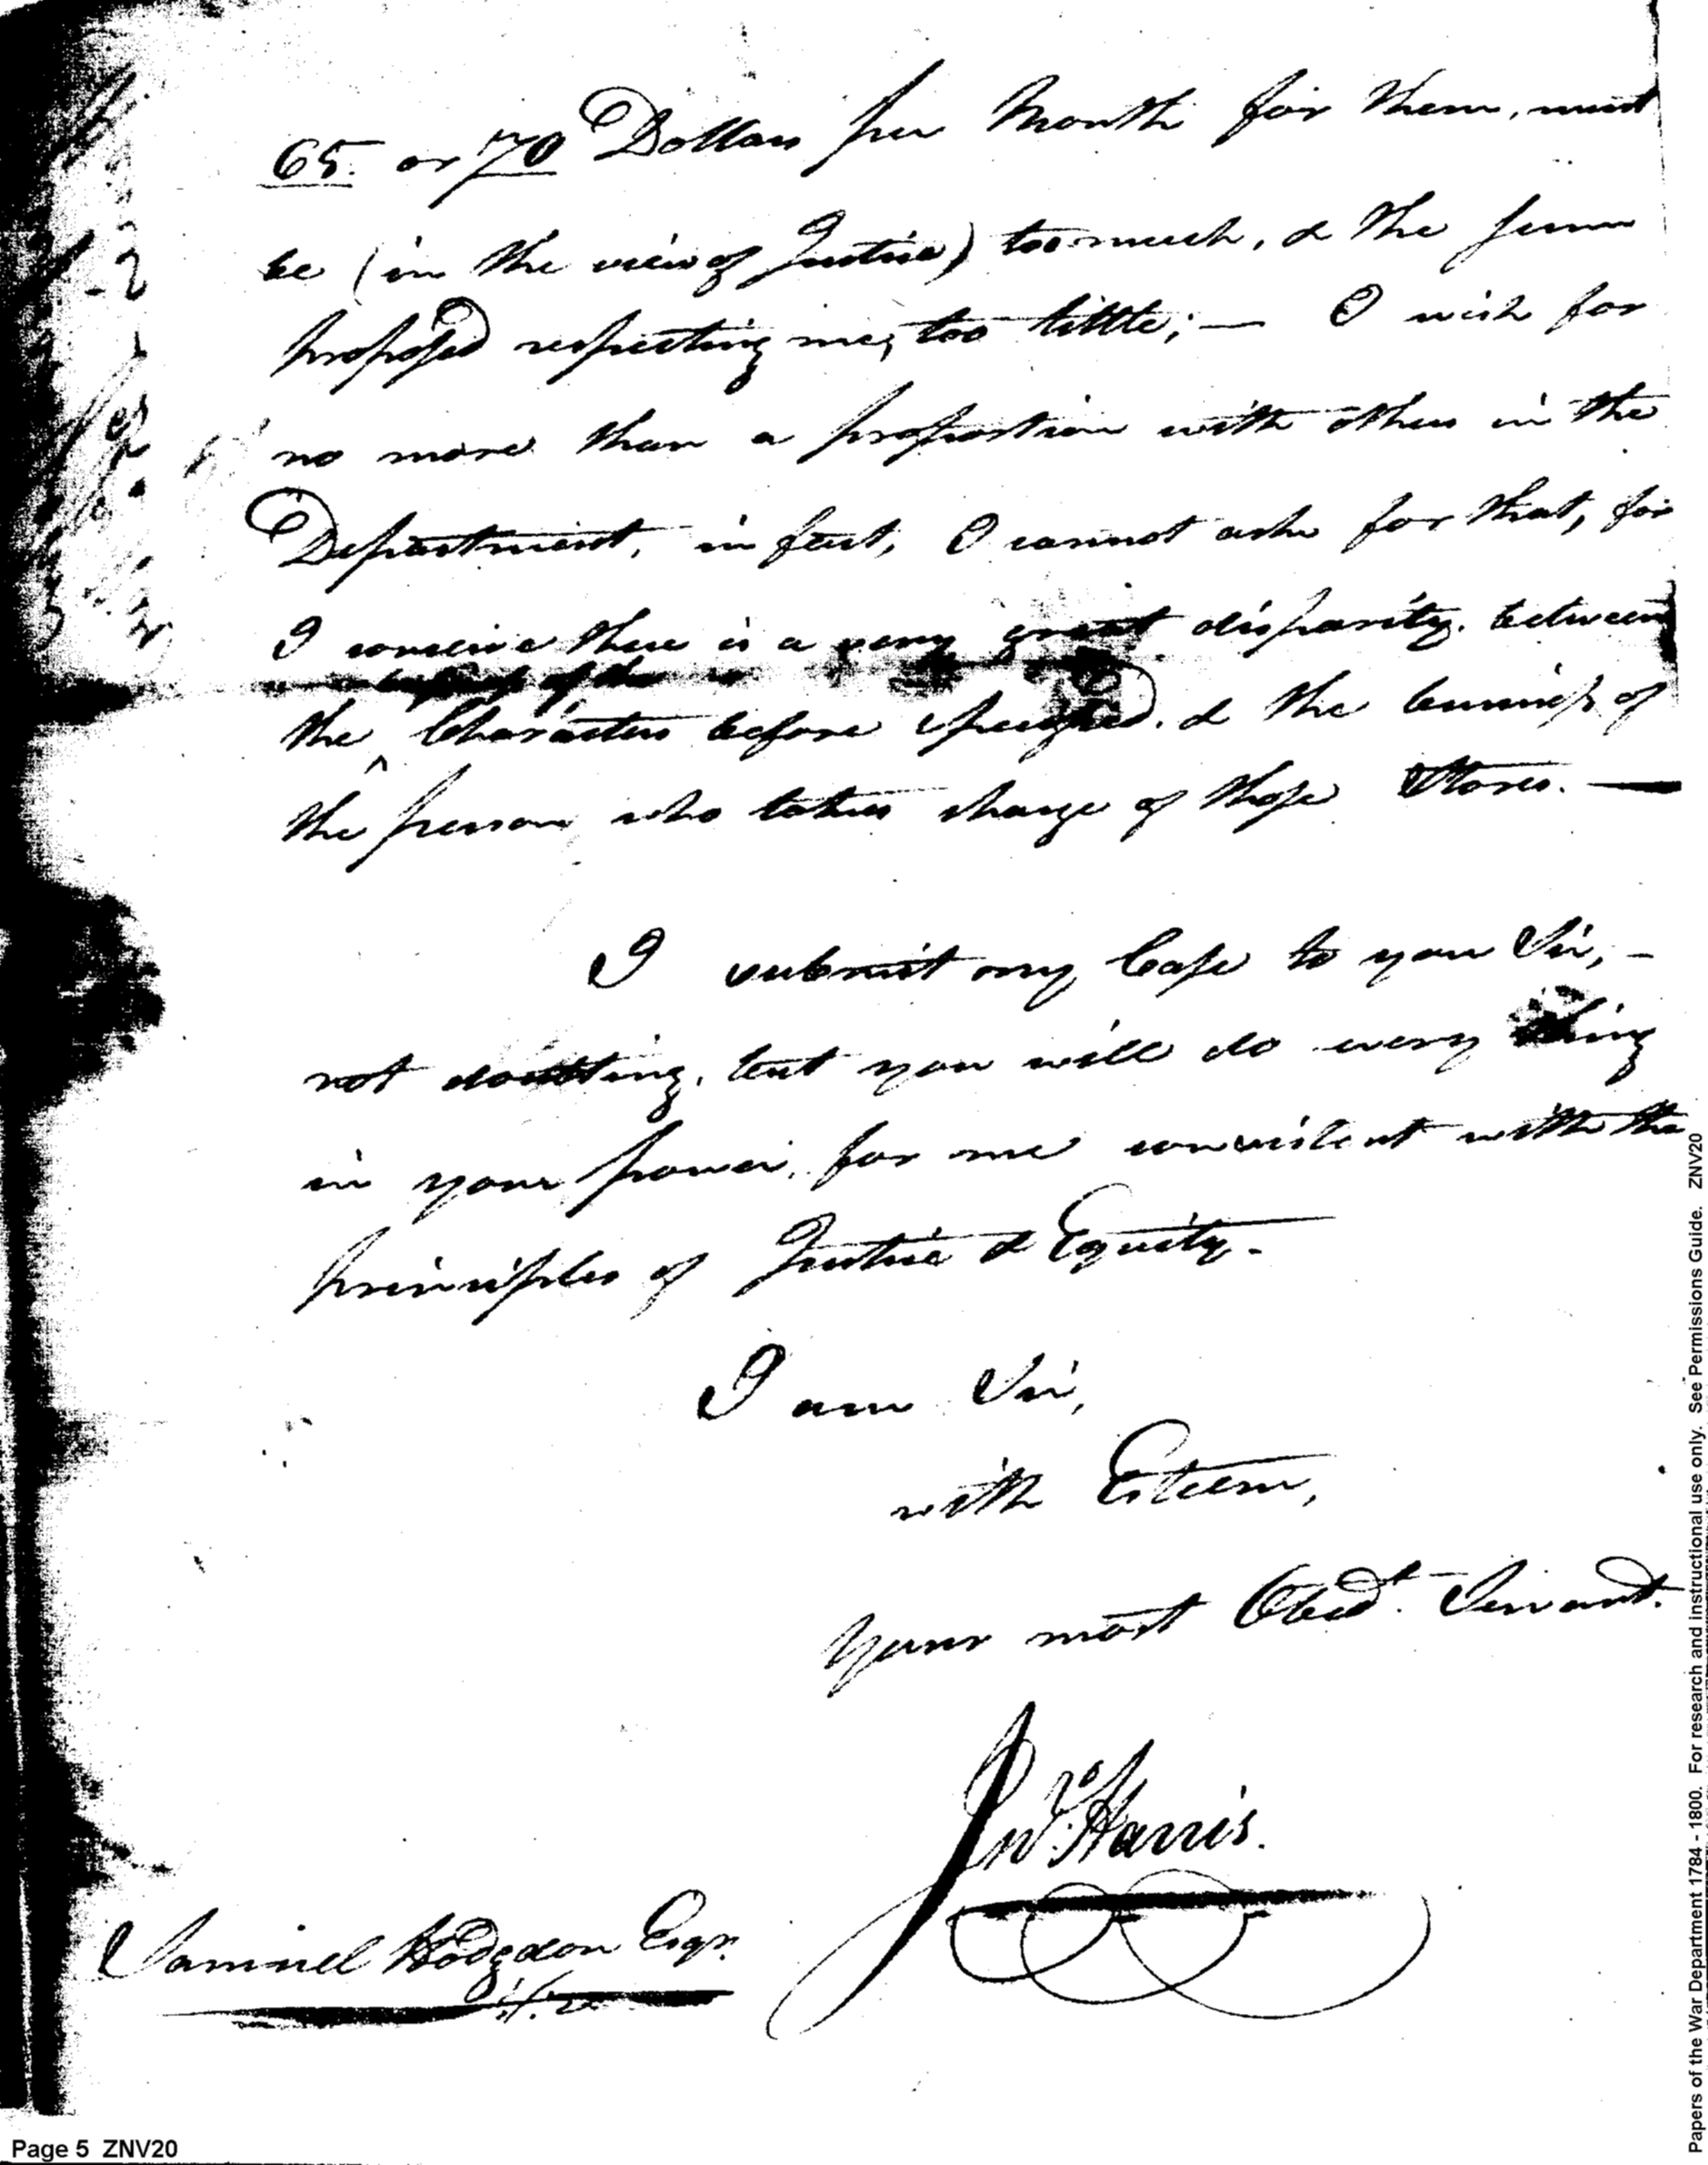 65. or 70 Dollars per Month for them, must
be (in the view of Justice) too much, & the sum
proposed respecting me, too little; — I wish for
no more than a proportion with others in the
Department, in fact, I cannot ask for that, for
I conceive there is a very great disparity between
business of the
the ^ Characters before specified, & the business of
the person who takes charge of those Stores. —
I submit my Case to you Sir, —
not doubting, but you will do every thing
in your power, for me consistent with the
principles of Justice & Equity. -
I am Sir,
with Esteem,
Your most Obedt. Servant.
Jno. Harris.
Samuel Hodgdon Esqr.
Page 5 ZNV20
Papers of the War Department 1784 - 1800. For research and instructional use only. See Permissions Guide. ZNV20